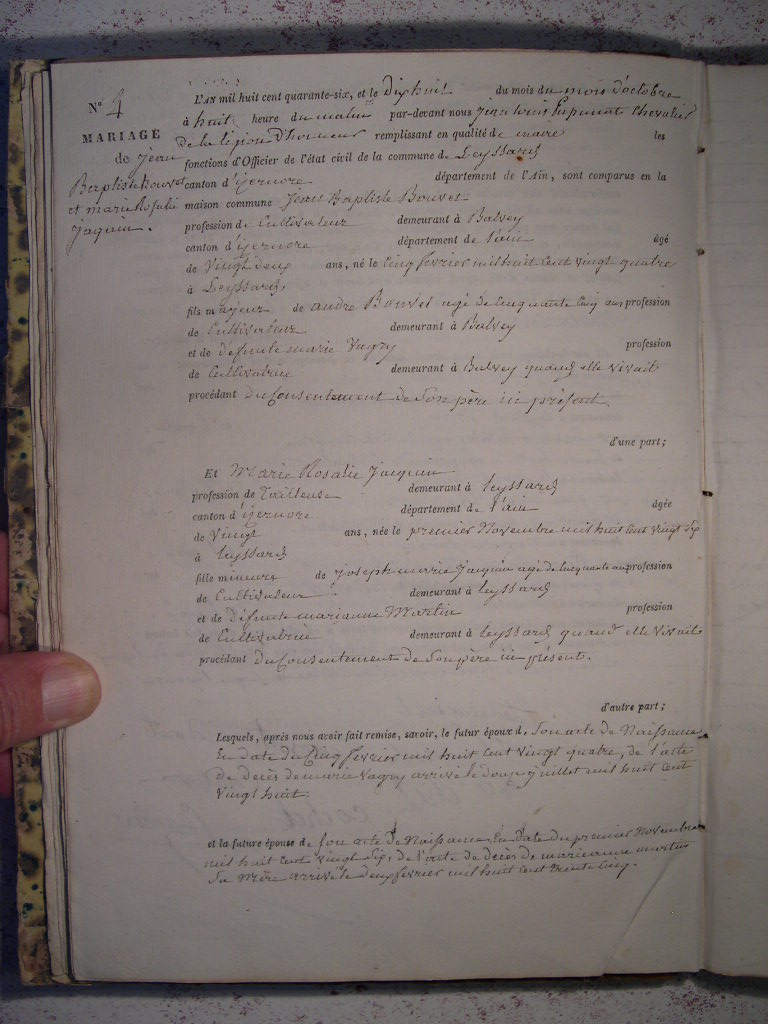 N° 4
MARIAGE
de jean
Baptiste Bouvet
et marie Rosalie
jaquin.
L'AN mil huit cent quarante-six, et le dix huit du mois du mois d'octobre
à huit heure du matin par-devant nous jean louis Chevalier
de la légion d'honneur remplissant en qualité de maire les
fonctions d'Officier de l'état civil de la commune de Leyssard
canton d'izernore département de l'Ain, sont comparus en la
maison commune Jean Baptiste Bouvet
profession de Cultivateur demeurant à Balvey
canton d'izernore département de l'ain âgé
de Vingt deux ans, né le cinq fevrier mil huit cent vingt quatre
à Leyssard
fils majeur de andré Bouvet agé de Cinquante Cinq ans profession
de Cultivateur demeurant à Balvey
et de défunte marie Vagry profession
de Cultivatrice demeurant à Balvey quand elle vivait
procédant du Consentement de Son père ici présent.
d'une part;
Et Marie Rosalie Jacquin
profession de Tailleuse demeurant à leyssard
canton d'izernore département de l'ain âgée
de Vingt ans, née le premier Novembre mil huit Cent vingt Six
à leyssard
fille mineure de joseph marie jacquin agé de Cinquante ans profession
de Cultivateur demeurant à leyssard
et de défunte marianne Martin profession
de Cultivatrice demeurant à leyssard quand elle vivait
procédant du Consentement de Son père ici présent.
d'autre part;
Lesquels, après nous avoir fait remise, savoir, le futur époux d. Son acte de Naissance
En date du Cinq fevrier mil huit Cent vingt quatre, de l'acte
de décès de marie Vagry arrivé le douze juillet mil huit Cent
Vingt huit.
et la future épouse de Son acte de Naissance En date du premier Novembre
mil huit Cent vingt Six, de l'acte de décès de marieanne martin
Sa Mère arrivé le deux fevrier mil huit Cent trente Cinq.